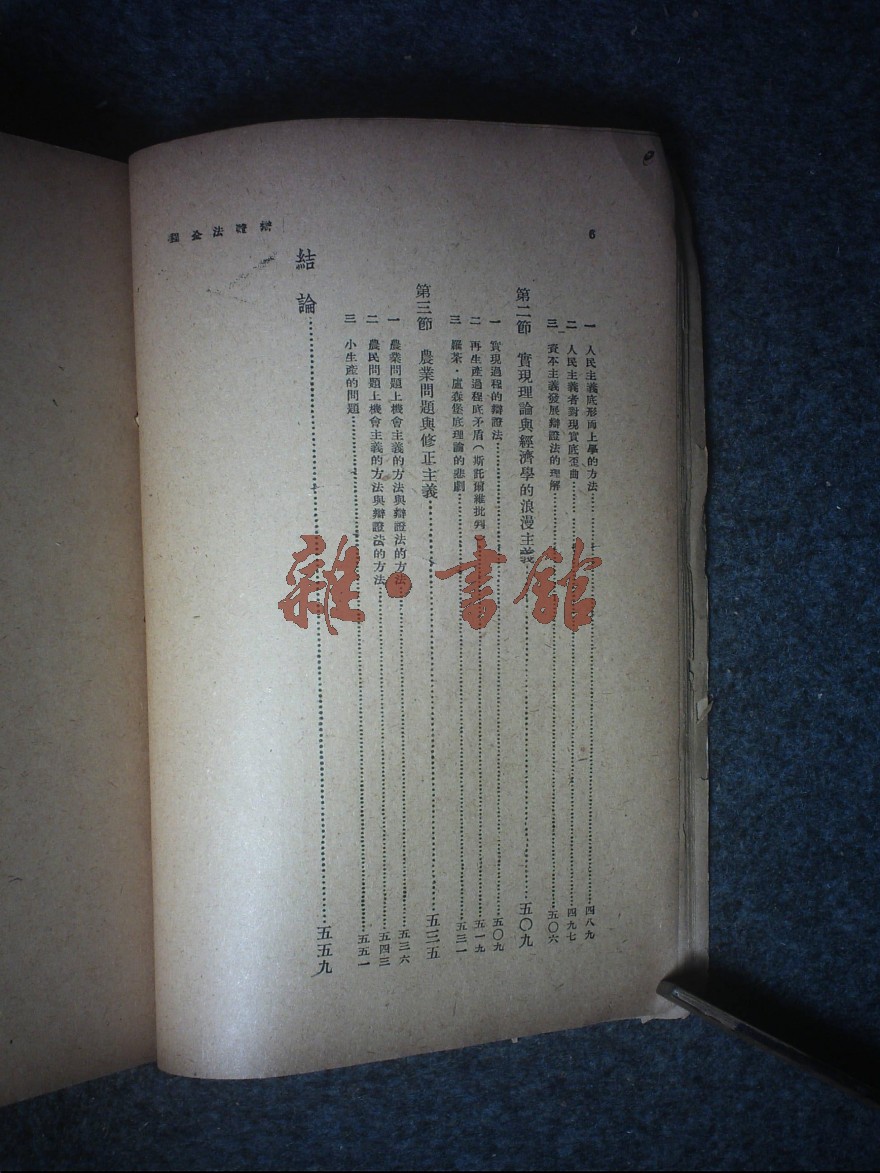 6
一　人民主義底形而上學的方法……四八九
二　人民主義者對現實底歪曲……四九七
三　資本主義發展辯證法的理解……五〇六
第二節　實現理論與經濟學的浪漫主義……五〇九
一　實現過程的辯證法……五〇九
二　再生產過程底矛盾(斯託爾維批判)……五一九
三　羅茶・盧森堡底理論的悲劇……五三一
第三節　農業問題與修正主義……五三五
一　農業問題上機會主義的方法與辯證法的方法……五三六
二　農民問題上機會主義的方法與辯證法的方法……五四三
三　小生產的問題……五五一
結論……五五九
辯證法全程
雜・書館